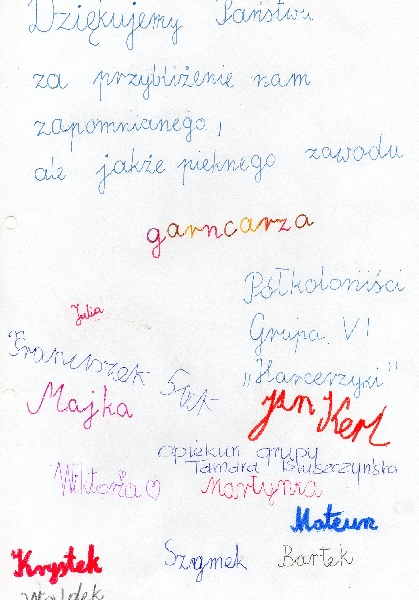 Dziękujemy Państwu
za przybliżenie nam
zapomnianego,
ale jakże pięknego zawodu
garncarza
Półkoloniści
Grupa VI
„Harcerzyki"
Julia
Franciszek
Majka
Jan Kerl
opiekun grupy
Tamara
Wiktoria
Martyna
Mateusz
Krystek
Szymek
Bartek
Waldek